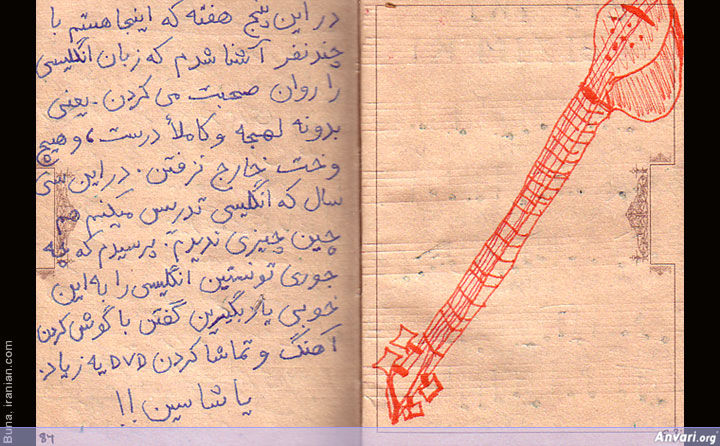 در این پنج هفته که اینجا هستم با
چند نفر آشنا شدم که زبان انگلیسی
را روان صحبت می کردن. یعنی
بدونه لهجه و کاملاً درست، و هیچ
وخت خارج نرفتن. در این سی
سال که انگلیسی تدریس میکنم هم
چین چیزی ندیدم. پرسیدم که چه
جوری تونستین انگلیسی را به این
خوبی یاد بگیرین گفتن با گوش کردن
آهنگ و تماشا کردن DVD یه زیاد.
یاشاسین!!
84
Buna, iranian.com
Anvari.org